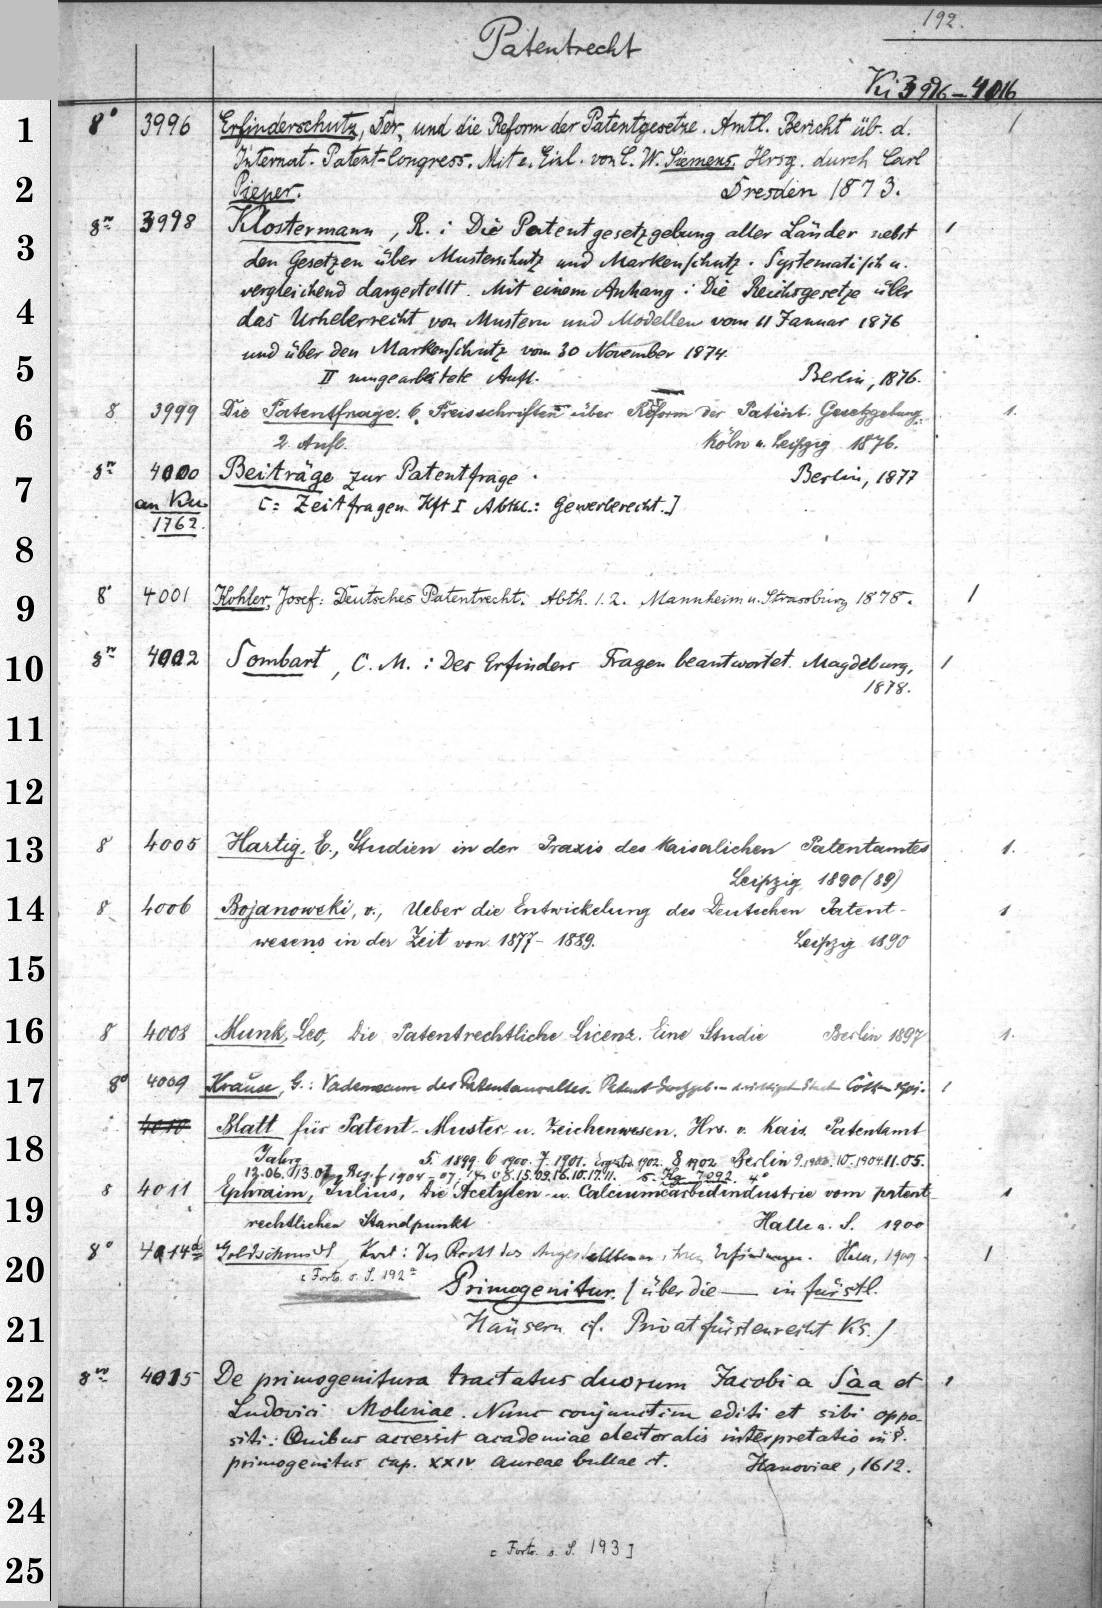 192.
Patentrecht
Ki 3996-4016
1
2
3
4
5
6
7
8
9
10
11
12
13
14
15
16
17
18
19
20
21
22
23
24
25
8° 3996 Erfinderschutz, Der, und die Reform der Patentgesetze. Amtl. Bericht üb. d. 1
Internat. Patent-Congress. Mit e. Einl. von C. W. Siemens. Hrsg. durch Carl
Pieper. Dresden 1873.
3998 Klostermann, R.: Die Patentgesetzgebung aller Länder nebst 1
den Gesetzen über Musterschutz und Markenschutz. Systematisch u.
vergleichend dargestellt. Mit einem Anhang: Die Reichsgesetze über
das Urheberrecht von Mustern und Modellen vom 11 Januar 1876
und über den Markenschutz vom 30 November 1874.
II umgearbeitete Aufl. Berlin, 1876.
8 3999 Die Patentfrage. 6. Preisschriften über Reform der Patent. Gesetzgebung. 1.
2. Aufl. Köln u. Leipzig 1876.
4000 Beiträge zur Patentfrage. Berlin, 1877
an Ku. [= Zeitfragen Hft I Abtl.: Gewerberecht.]
1762.
8° 4001 Kohler, Josef: Deutsches Patentrecht. Abth. 1.2. Mannheim u. Strassburg 1878. 1
4002 Sombart, C. M.: Des Erfinders Fragen beantwortet. Magdeburg, 1
1878.
8 4005 Hartig. E., Studien in der Praxis des Kaiserlichen Patentamtes 1.
Leipzig 1890(89)
8 4006 Bojanowski, v., Ueber die Entwickelung des Deutschen Patent- 1
wesens in der Zeit von 1877-1889. Leipzig 1890
8 4008 Munk, Leo, Die Patentrechtliche Licenz. Eine Studie Berlin 1897 1.
8° 4009 Krause, G.: Vademecum des Patentanwaltes. 1
4010 Blatt für Patent- Muster u. Zeichenwesen. Hrs. v. Kais. Patentamt
Jahrg 5. 1899. 6 1900. 7. 1901. 8 1902 Berlin
8 4011 Ephraim, Julius, Die Acetylen- u. Calciumcarbidindustrie vom patent 1
rechtlichen Standpunkt Halle a. S. 1900
8° 4014 Goldschmidt, Karl: Das Recht der Angestellten an ihren Erfindungen. 1909. 1
[Forts. s. S. 192
Primogenitur. / über die — in fürstl.
Häusern cf. Privatfürstenrecht Ks. /
4015 De primogenitura tractatus duorum Jacobi a Sàa et 1
Ludovici Molinae. Nunc conjunctim editi et sibi oppo-
siti: Quibus accessit academiae electoralis interpretatio in
primogenitus cap. XXIV aureae bullae et. Hanoviae, 1612.
[Forts. s. S. 193]